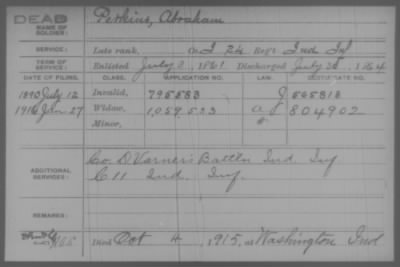 DEAD
NAME OF SOLDIER:
Perkins, Abraham
SERVICE:
Late rank, Co. I 24 Regt Ind Inf
TERM OF SERVICE:
Enlisted July 8, 1861 Discharged July 28, 1864
DATE OF FILING. CLASS. APPLICATION NO. LAW. CERTIFICATE NO.
1890 July 12 Invalid, 795583
1916 Jan 27 Widow, 1,059,523 804902
Minor,
ADDITIONAL SERVICES:
Co D Varner's Battln Ind. Inf
C 11 Ind Inf.
REMARKS:
Died Oct 4, 1915, at Washington Ind